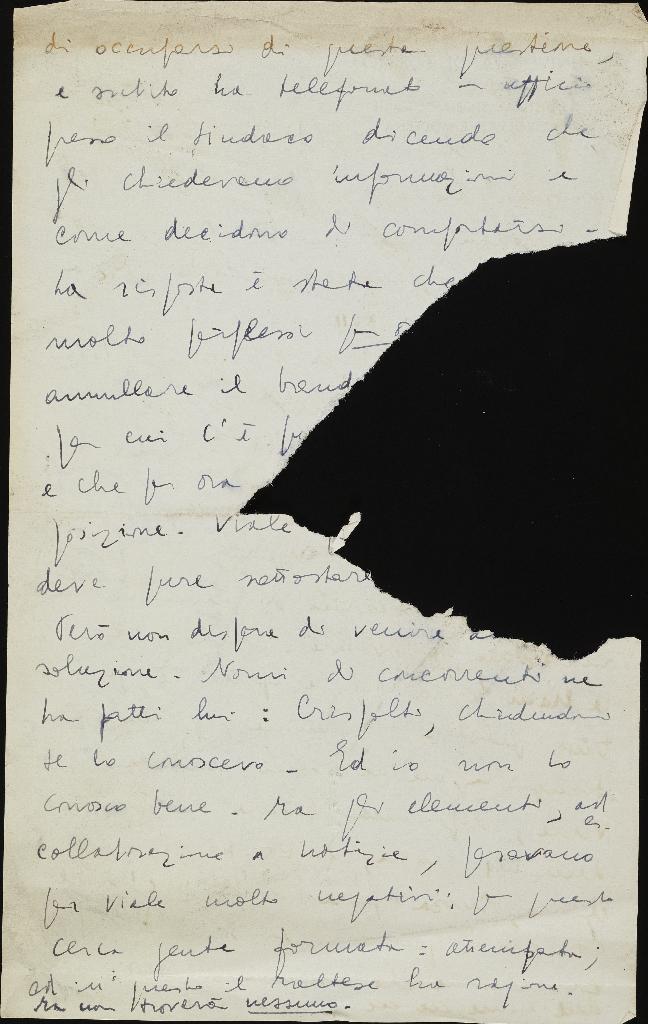 di occuparsi di questa questione,
e subito ha telefonato in ufficio
presso il Sindaco dicendo che
gli chiedevano informazioni e
come decidono di comportarsi -
La risposta è stata che
molto perplessi per
annullare il
per cui c'è
e che per ora
posizione. Viale
deve pure sottostare
Però non dispera di venire a
soluzione. Nomi di concorrenti ne
ha fatti lui: Crispolti, chiedendomi
se lo conoscevo - Ed io non lo
conosco bene. Ma gli elementi, ad es.
collaborazione a notizie, pesavano
per Viale molto negativi: per questo
cerca gente formata = attempata;
ed in questo il Maltese ha ragione.
Ma non troverà nessuno.